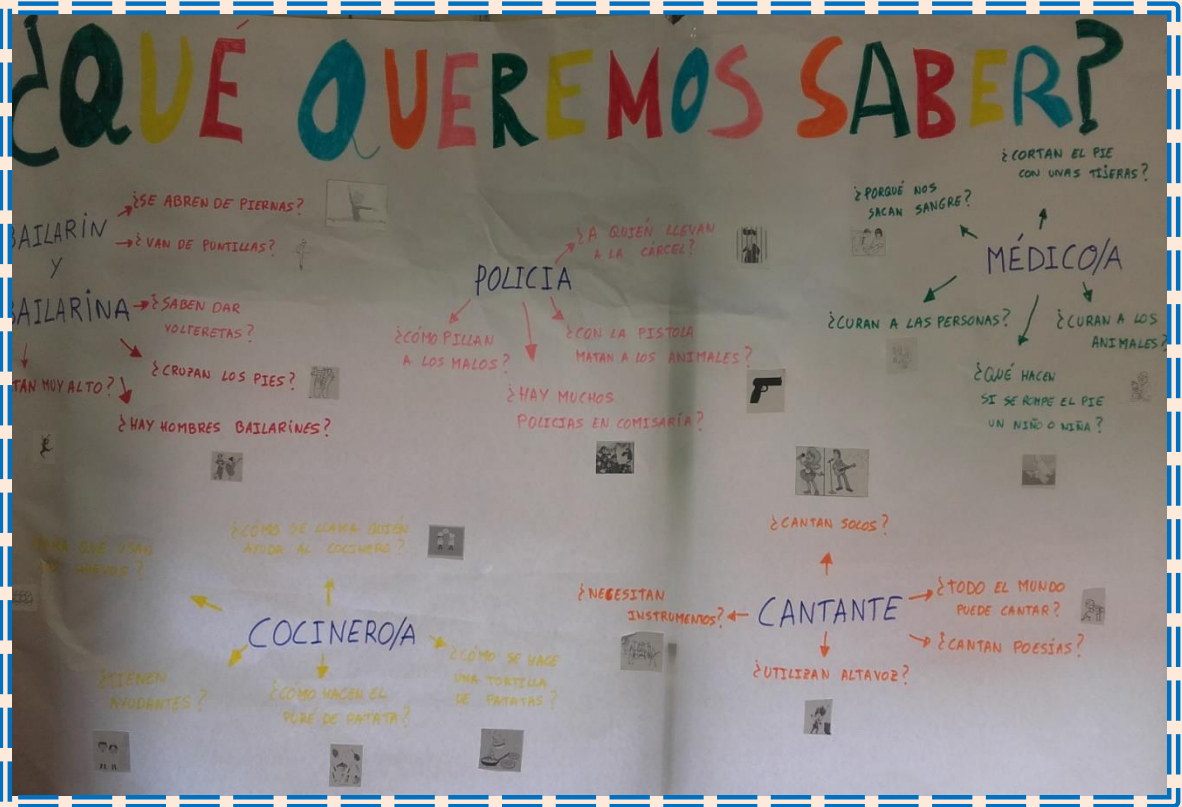 ¿QUÉ QUEREMOS SABER?
BAILARÍN
Y
BAILARINA
¿SE ABREN DE PIERNAS?
¿VAN DE PUNTILLAS?
¿SABEN DAR
VOLTERETAS?
¿CRUZAN LOS PIES?
MUY ALTO?
¿HAY HOMBRES BAILARINES?
POLICÍA
¿A QUIÉN LLEVAN
A LA CÁRCEL?
¿CÓMO PILLAN
A LOS MALOS?
¿CON LA PISTOLA
MATAN A LOS ANIMALES?
¿HAY MUCHOS
POLICIAS EN COMISARÍA?
MÉDICO/A
¿CORTAN EL PIE
CON UNAS TIJERAS?
¿PORQUÉ NOS
SACAN SANGRE?
¿CURAN A LAS PERSONAS?
¿CURAN A LOS
ANIMALES?
¿QUÉ HACEN
SI SE ROMPE EL PIE
UN NIÑO O NIÑA?
COCINERO/A
¿CÓMO SE LLAMA QUIÉN
AYUDA AL COCINERO?
QUE USAN
HUEVOS?
¿TIENEN
AYUDANTES?
¿CÓMO HACEN EL
PURÉ DE PATATA?
¿CÓMO SE HACE
UNA TORTILLA
DE PATATAS?
CANTANTE
¿CANTAN SOLOS?
¿NECESITAN
INSTRUMENTOS?
¿TODO EL MUNDO
PUEDE CANTAR?
¿CANTAN POESÍAS?
¿UTILIZAN ALTAVOZ?